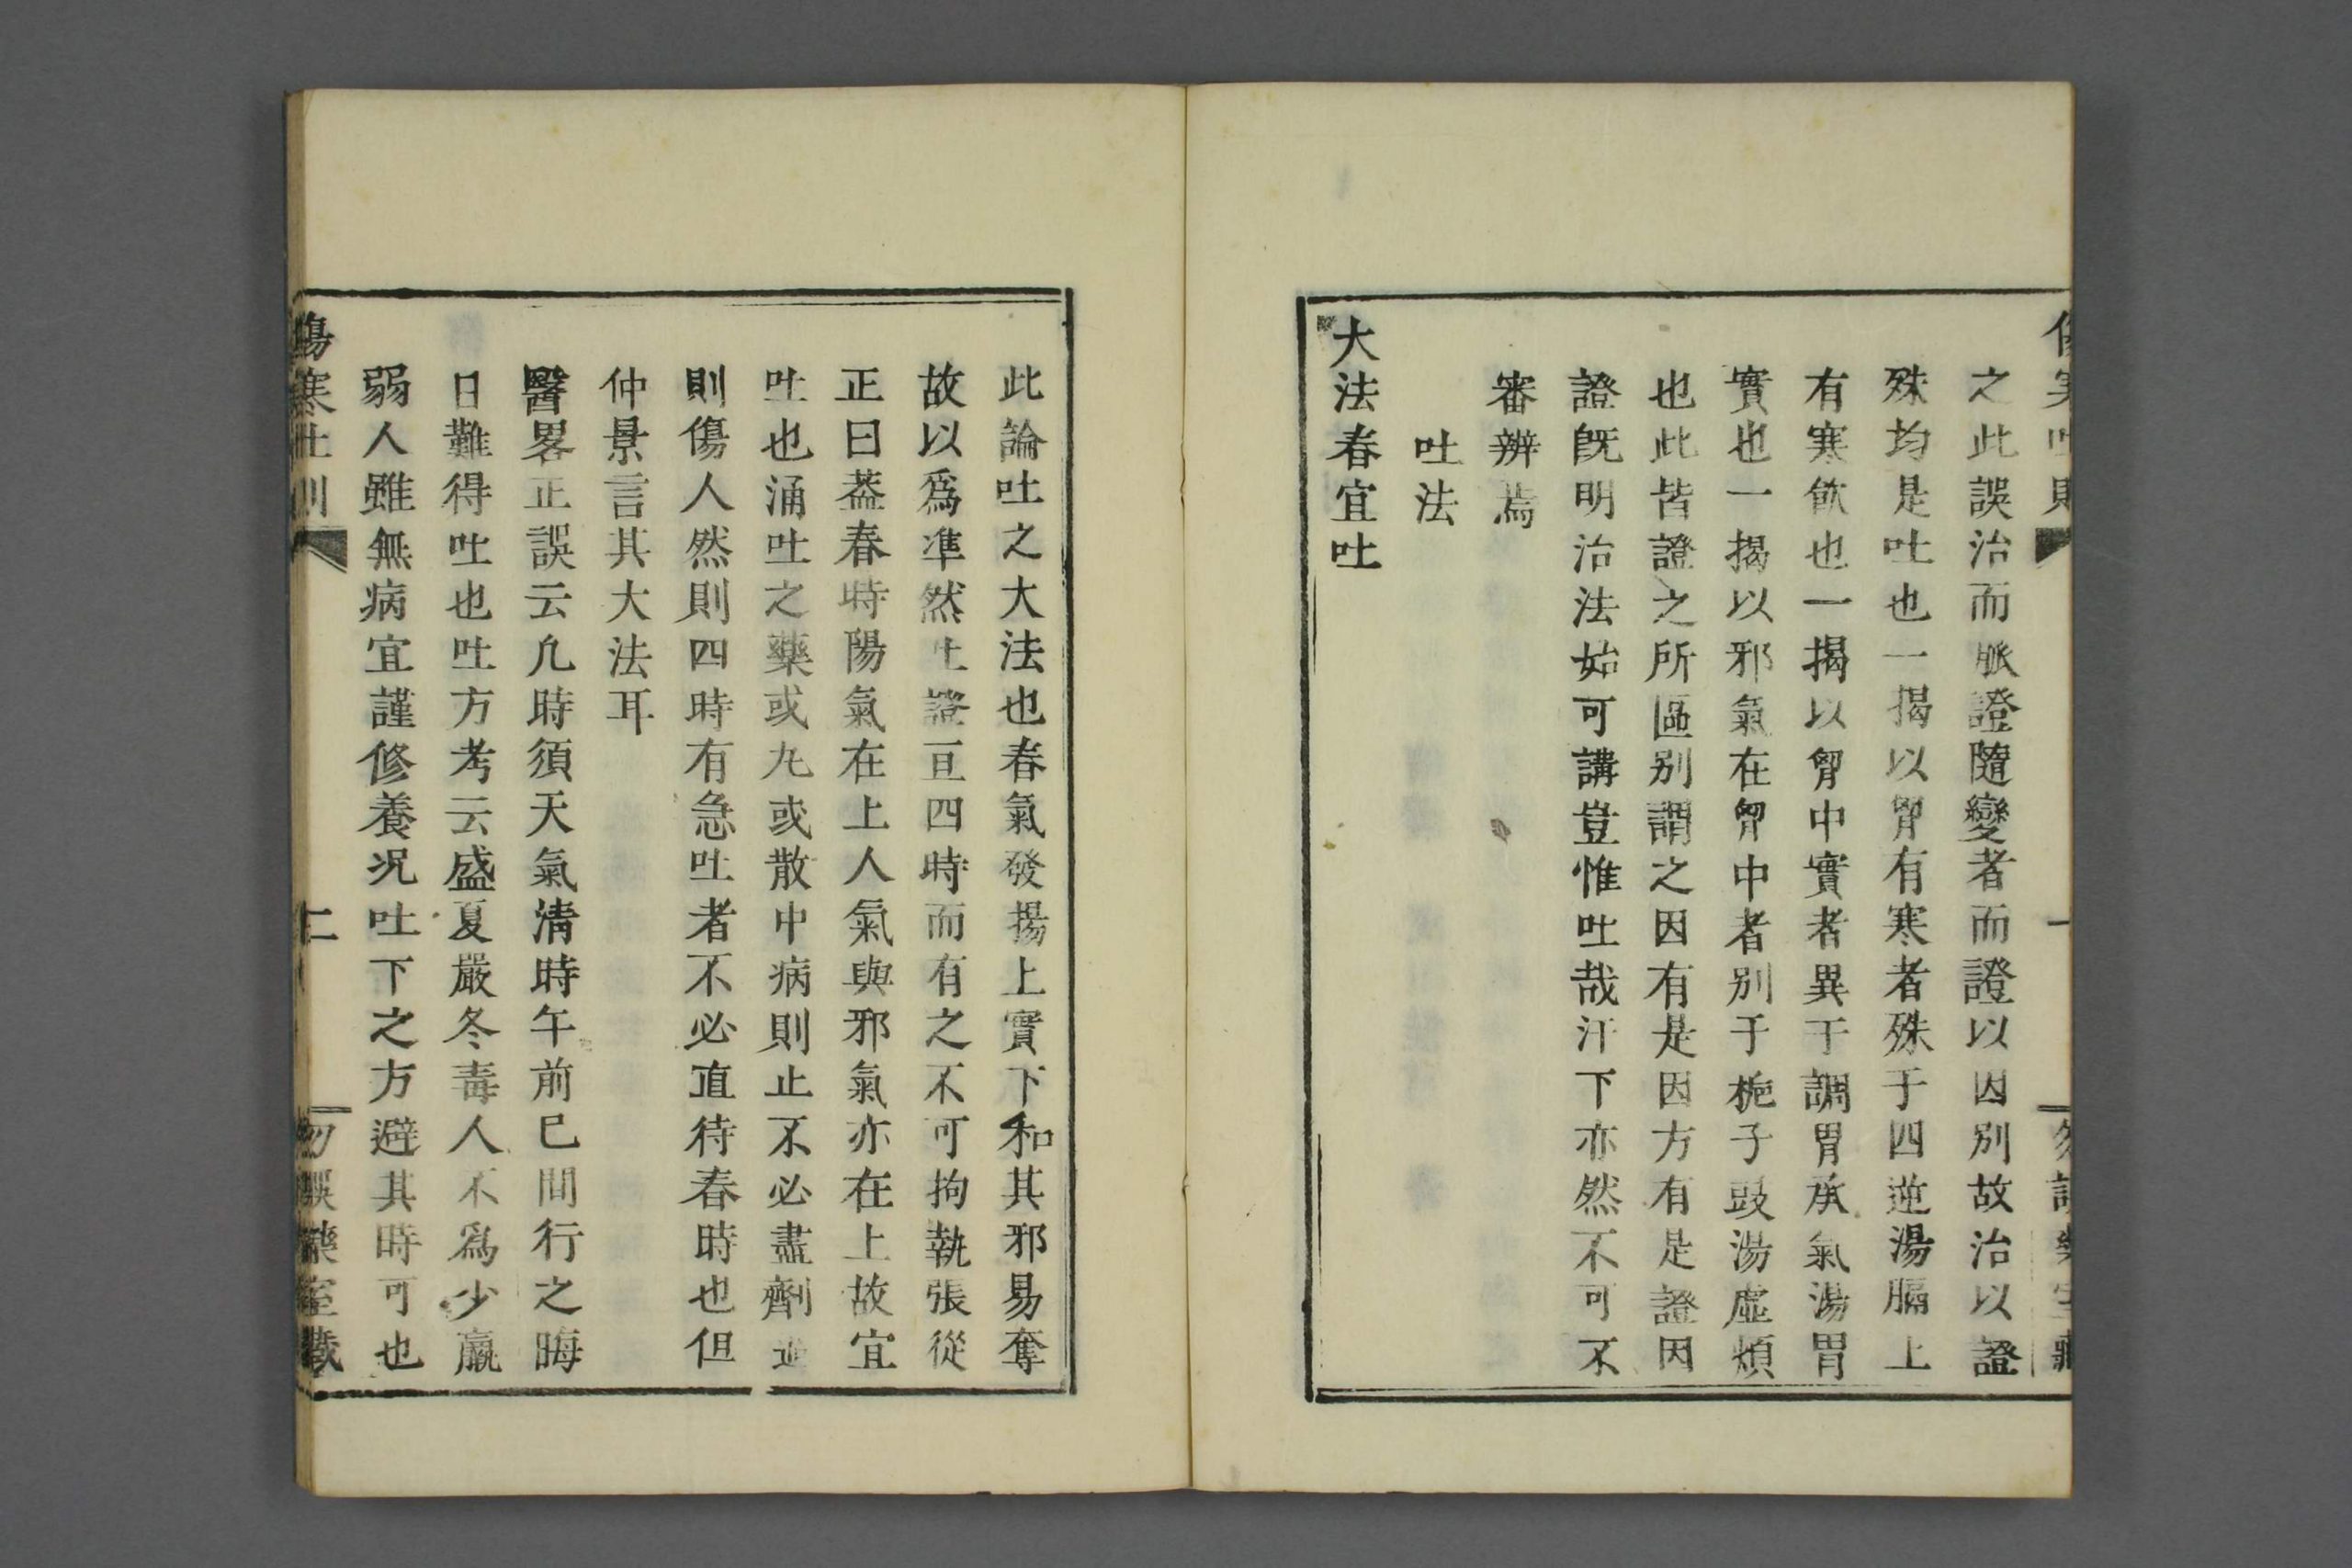 之此誤治而脈證隨變者而證以因別故治以證
殊均是吐也一揭以胷有寒者殊于四逆湯膈上
有寒飮也一揭以胷中實者異于調胃承氣湯胃
實也一揭以邪氣在胷中者別于梔子豉湯虛煩
也此皆證之所區別謂之因有是因方有是證因
證旣明治法始可講豈惟吐哉汗下亦然不可不
審辨焉
吐法
大法春宜吐
此論吐之大法也春氣發揚上實下和其邪易奪
故以爲準然吐證亘四時而有之不可拘執張從
正曰蓋春時陽氣在上人氣與邪氣亦在上故宜
吐也涌吐之藥或丸或散中病則止不必盡劑過
則傷人然則四時有急吐者不必直待春時也但
仲景言其大法耳
醫畧正誤云凡時須天氣淸時午前巳間行之晦
日難得吐也吐方考云盛夏嚴冬毒人不爲少羸
弱人雖無病宜謹修養況吐下之方避其時可也
傷寒吐則
二
勿誤藥室藏